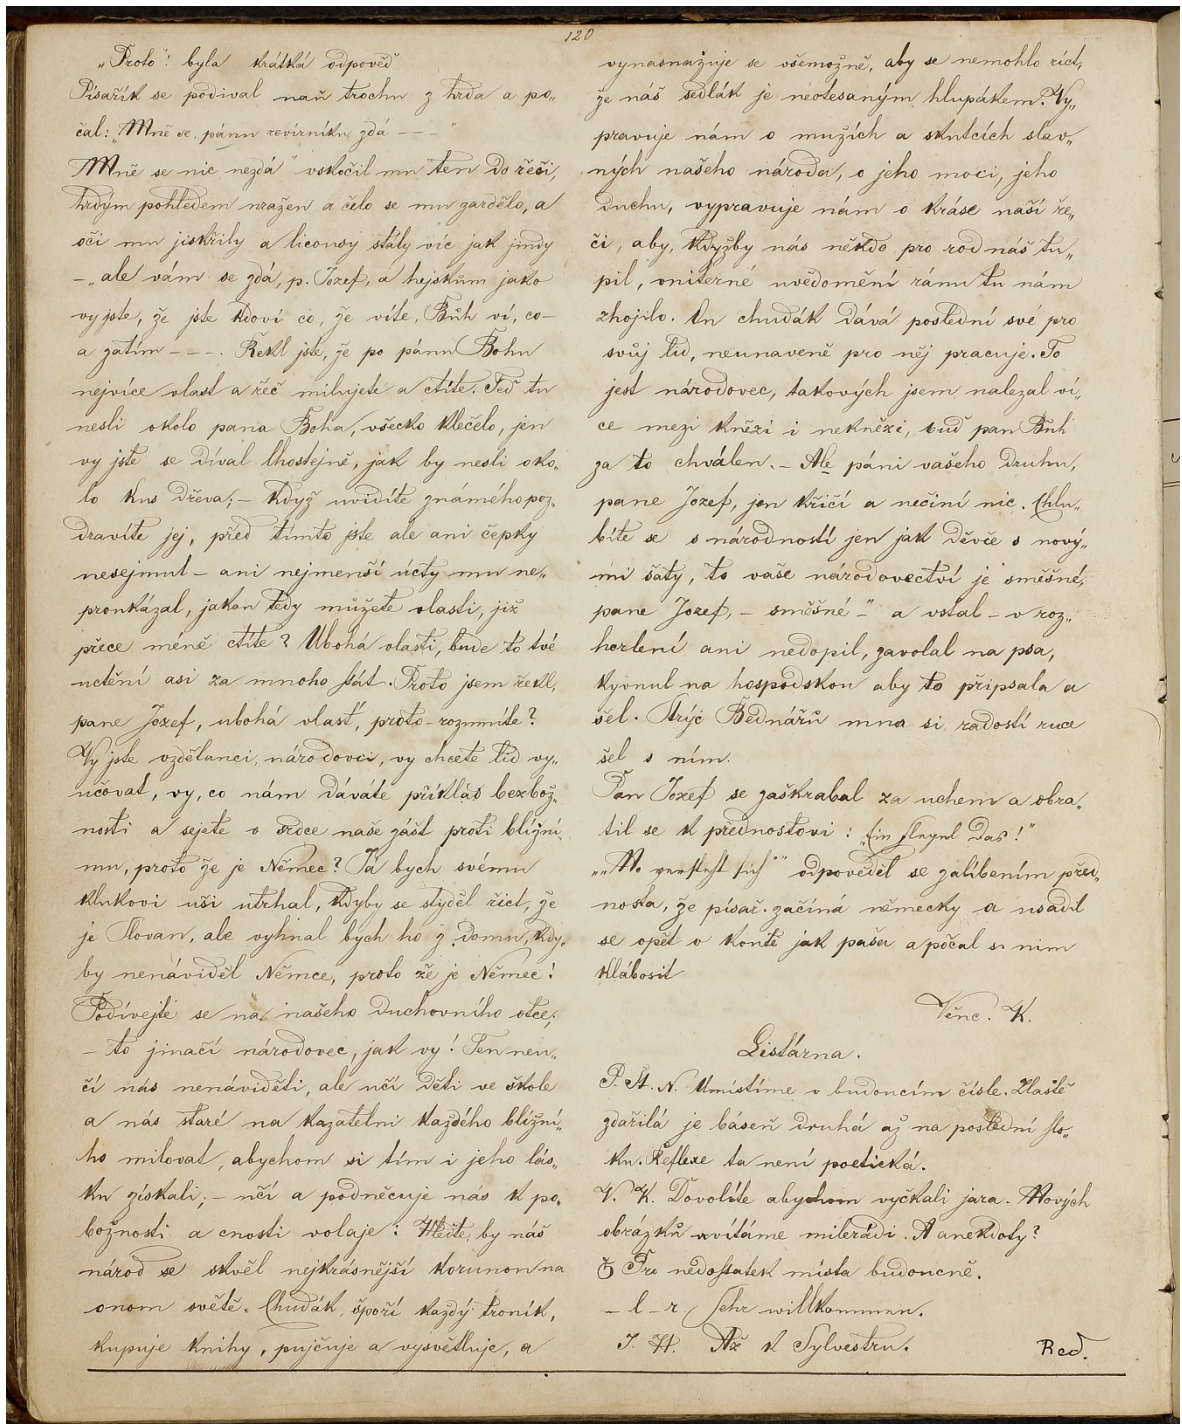 120
„Proto“! byla krátká odpověď
Písařík se podíval naň trochu z hrda a po„
čal: „Mně se, pánu revírníku zdá – – – “
Mně se nic nezdá“ vskočil mu ten do řeči,
hrdým pohledem uražen a čelo se mu zardělo, a
oči mu jiskřily a licousy stály víc jak jindy
– „ale vám se zdá, p. Jozef, a hejskům jako
vy jste, že jste kdoví co, že víte, Bůh ví, co –
a zatím – – –. Řekl jste, že po pánu Bohu
nejvíce vlast a řeč milujete a ctíte. Teď tu
nesli okolo pana Boha, všecko klečelo, jen
vy jste se díval lhostejně, jak by nesli oko„
lo kus dřeva; – když uvidíte známého poz„
dravíte jej, před tímto jste ale ani čepky
nesejmul – ani nejmenší úcty mu ne„
proukázal, jakou tedy můžete vlasti, již
přece méně ctíte? Ubohá vlasti, bude to tvé
uctění asi za mnoho stát. Proto jsem řekl,
pane Jozef, ubohá vlast, proto – rozumíte?
Vy jste vzdělanci, národovci, vy chcete lid vy„
učovat, vy, co nám dáváte příklad bezbož„
nosti a sejete v srdce naše zášt proti bližní„
mu, proto že je Němec? Já bych svému
klukovi uši utrhal, kdyby se styděl říct, že
je Slovan, ale vyhnal bych ho z domu, kdy„
by nenáviděl Němce, proto že je Němec!
Podívejte se na našeho duchovního otce;
– to jinačí národovec, jak vy! Ten neu„
čí nás nenáviděti, ale učí děti ve škole
a nás staré na kazatelni každého bližní„
ho milovat, abychom si tím i jeho lás„
ku získali; – učí a podněcuje nás k po„
božnosti a cnosti volaje: Hleďte, by náš
národ se skvěl nejkrásnější korunou na
onom světě. Chudák, spoří každý troník,
kupuje knihy, pujčuje a vysvětluje, a
vynasnažuje se všemožně, aby se nemohlo říct,
že náš sedlák je neotesaným hlupákem. Vy„
pravuje nám o mužích a skutcích slav„
ných našeho národa, o jeho moci, jeho
duchu, vypravuje nám o kráse naší ře„
či, aby, kdyžby nás někdo pro rod náš tu„
pil, vniterné uvědomění ránu tu nám
zhojilo. On chudák dává poslední své pro
svůj lid, neunaveně pro něj pracuje. To
jest národovec, takových jsem nalezal ví„
ce mezi kněží i nekněží, buď pan Bůh
za to chválen. – Ale páni vašeho druhu,
pane Jozef, jen křičí a nečiní nic. Chlu„
bíte se s národností jen jak děvče s nový„
mi šaty, to vaše národovectví je směšné,
pane Jozef, – směšné –“ a vstal – v roz„
horlení ani nedopil, zavolal na psa,
kývnul na hospodskou aby to připsala a
šel. Strýc Bednářů mna si radostí ruce
šel s ním.
Pan Jozef se zaškrabal za uchem a obra„
til se k přednostovi: „Ein Flegel das!“
„„No versteht sich““ odpověděl se zalíbením před„
nosta, že písař začíná německy a usadil
se opět v koutě jak paša a počal s ním
klábosit
Věnc. K.
Listárna.
P. St. N. Umístíme v budoucím čísle. Zlaště
zdařilá je báseň druhá až na poslední slo„
ku. Reflexe ta není poetická.
V. K. Dovolíte abychom vyčkali jara. Nových
obrázků uvítáme milerádi. A anekdoty?
Pro nedostatek místa budoucně.
– l – r. Sehr willkommen.
J. H. Až k Sylvestru.
Red.